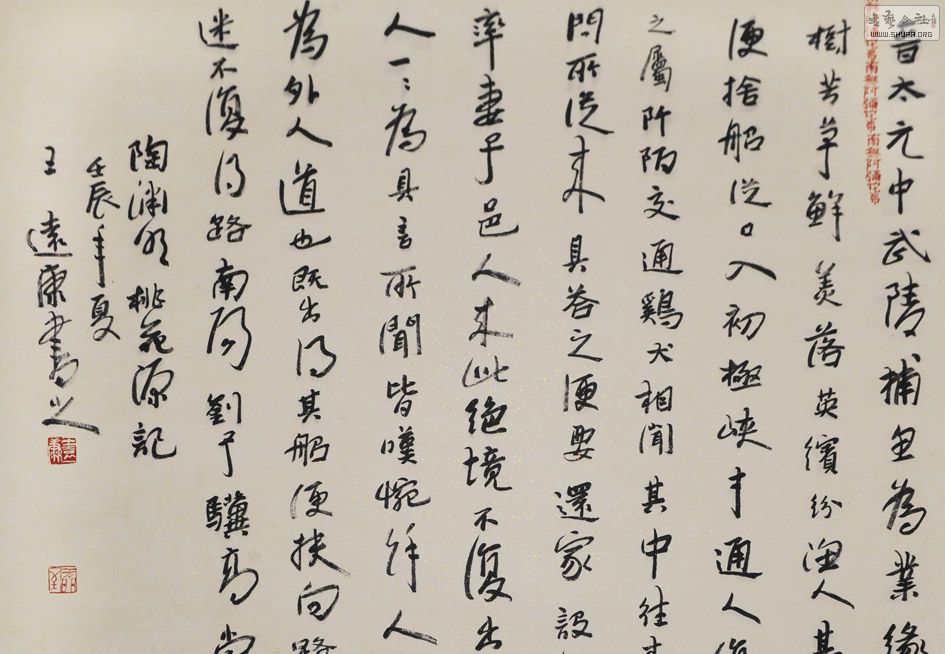 晋太元中武陵捕鱼为業缘
樹芳草鲜羙落英繽纷渔人甚
便捨船从口入初極峡才通人復
之屬阡陌交通鷄犬相闻其中往来
問所从来具答之便要還家設
率妻子邑人来此绝境不復出
人一一為具言所聞皆嘆惋馀人
為外人道也既出得其船便扶向路
迷不復得路南阳劉子驥高尚
陶渊明桃花源記
壬辰年夏
王遠康書之
书艺公社
WWW.SHUFA.ORG